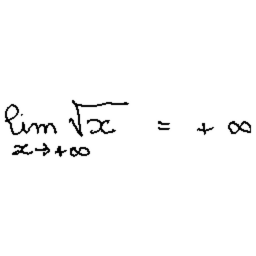 lim √x = + ∞
x → + ∞